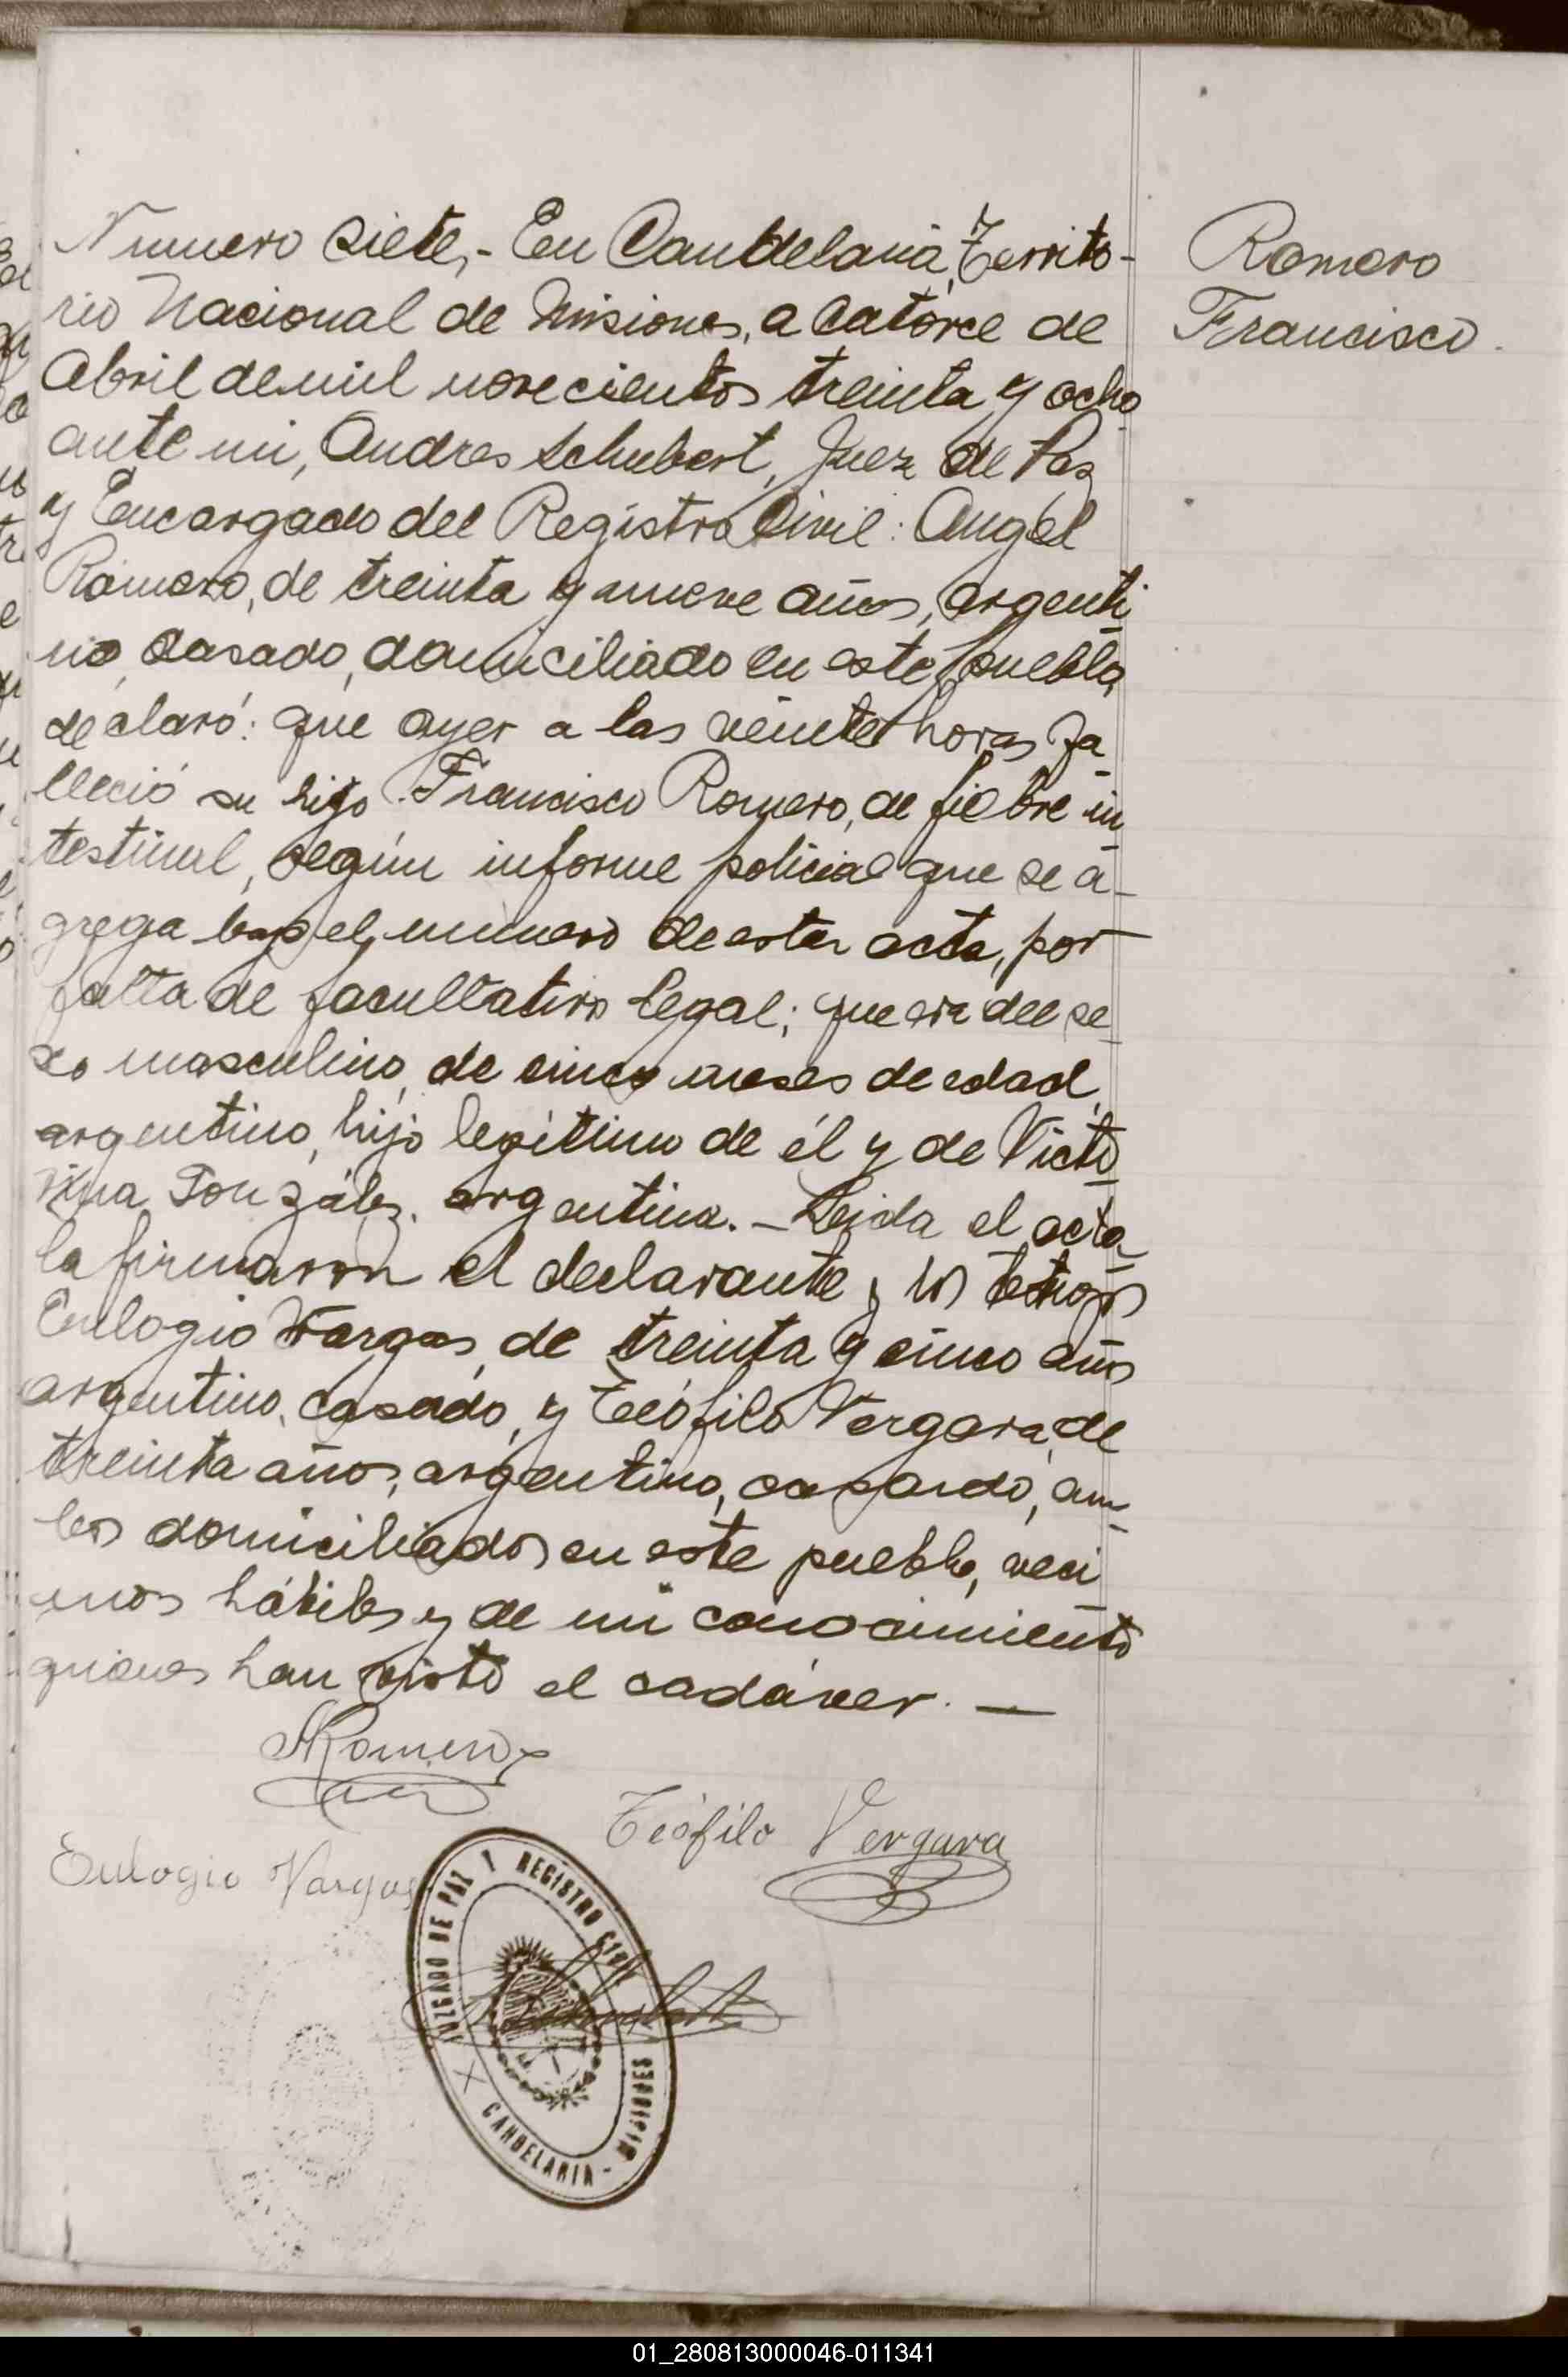 Numero siete,- En Candelaria, Territo-
rio Nacional de Misiones, a catorce de
Abril de mil novecientos treinta y ocho
ante mi, Andres Schubert, Juez de Paz
y Encargado del Registro Civil: Angel
Romero, de treinta y nueve años, argenti-
no, casado, domiciliado en este pueblo,
declaró: que ayer a las veinte horas fa-
lleció su hijo Francisco Romero, de fiebre in-
testinal, según informe policial que se a-
grega bajo el número de esta acta, por
falta de facultativo legal; que era del se-
xo masculino, de cinco meses de edad,
argentino, hijo legítimo de él y de Victo-
rina González, argentina.- Leida el acta
la firmaron el declarante y los testigos
Eulogio Vargas, de treinta y cinco años
argentino, casado, y Teófilo Vergara, de
treinta años, argentino, casado, am-
bos domiciliados en este pueblo, veci-
nos hábiles y de mi conocimiento
quienes han visto el cadáver. —
Romero
Francisco.
ARomero
Teófilo Vergara
Eulogio Vargas
JUZGADO DE PAZ Y REGISTRO CIVIL
CANDELARIA - MISIONES
01_280813000046-011341